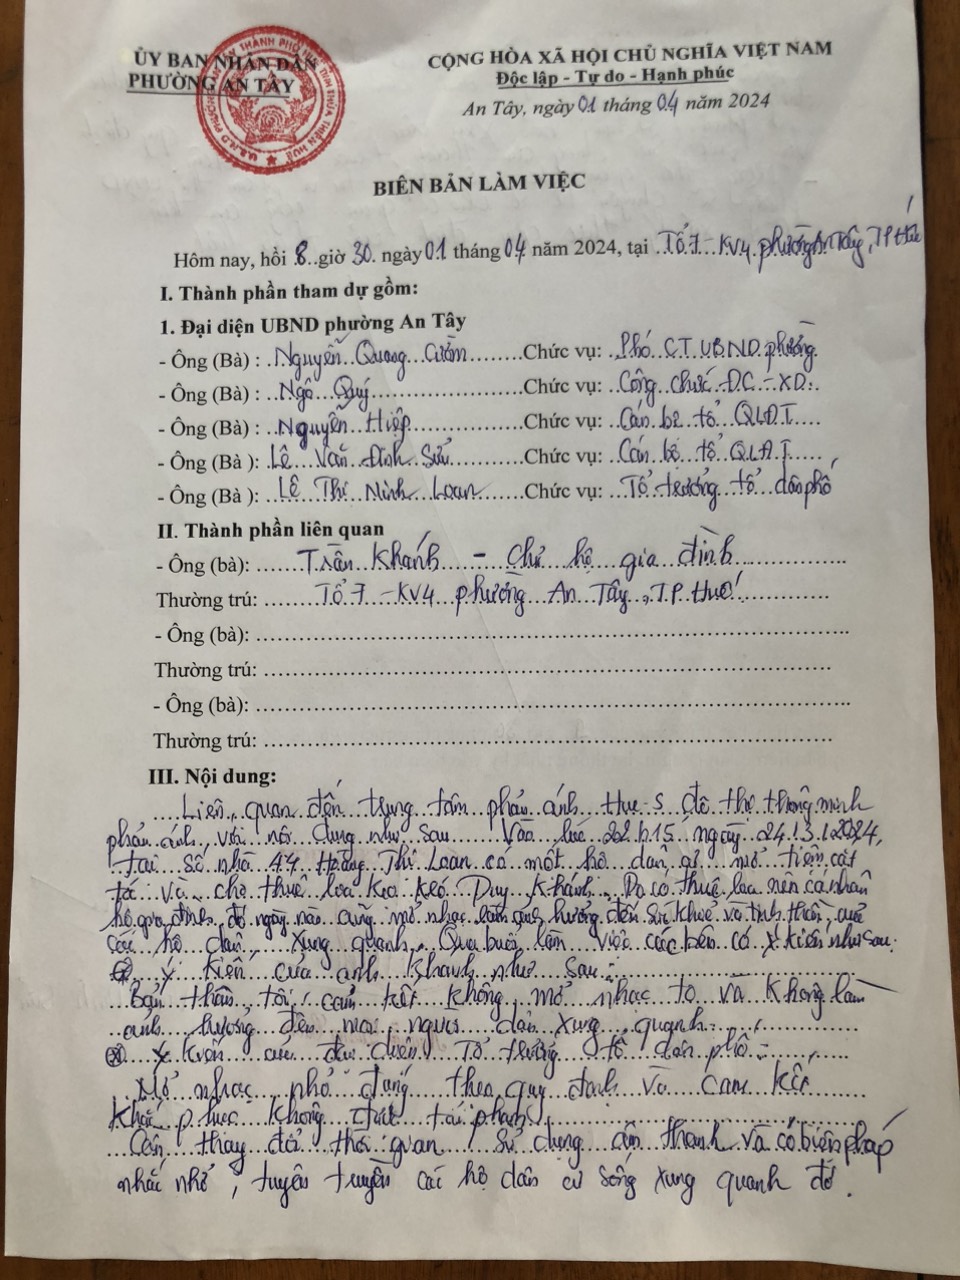 ỦY BAN NHÂN DÂN
PHƯỜNG AN TÂY
CỘNG HÒA XÃ HỘI CHỦ NGHĨA VIỆT NAM
Độc lập - Tự do - Hạnh phúc
An Tây, ngày 01 tháng 04 năm 2024
BIÊN BẢN LÀM VIỆC
Hôm nay, hồi 8 giờ 30 ngày 01 tháng 04 năm 2024, tại Tổ 7 - KV4 phường An Tây, TP Huế
I. Thành phần tham dự gồm:
1. Đại diện UBND phường An Tây
- Ông (Bà) : Nguyễn Quang Chức vụ: Phó C.T UBND phường
- Ông (Bà) : Ngô Quý Chức vụ: Công chức ĐC - XD
- Ông (Bà) : Nguyễn Hiệp Chức vụ: Cán bộ tổ QLĐT
- Ông (Bà ): Lê Văn Đình Sửu Chức vụ: Cán bộ tổ QLĐT
- Ông (Bà ): Lê Thị Minh Loan Chức vụ: Tổ trưởng tổ dân phố
II. Thành phần liên quan
- Ông (bà): Trần Khánh - Chủ hộ gia đình
Thường trú: Tổ 7 - KV4 phường An Tây, TP Huế
- Ông (bà):
Thường trú:
- Ông (bà):
Thường trú:
III. Nội dung:
Liên quan đến trung tâm phản ánh Hue-S đô thị thông minh
phản ánh với nội dung như sau Vào lúc 22h15 ngày 24/3/2024,
tại số nhà 47 Hoàng Thị Loan có một hộ dân mở tiệm cắt
tóc và cho thuê loa kẹo kéo Duy Khánh. Do có thuê loa nên cá nhân
hộ gia đình đó ngày nào cũng mở nhạc làm ảnh hưởng đến sức khoẻ và tinh thần của
các hộ dân xung quanh. Qua buổi làm việc các bên có ý kiến như sau:
Ý kiến của anh Khánh như sau:
Bản thân tôi cam kết không mở nhạc to và không làm
ảnh hưởng đến mọi người dân xung quanh.
Ý kiến của đại diện Tổ trưởng tổ dân phố:
Mở nhạc nhỏ đúng theo quy định và cam kết
Khắc phục không được tái phạm
Cần thay đổi thời gian sử dụng âm thanh và có biện pháp
nhắc nhở, tuyên truyền các hộ dân cư sống xung quanh đó.